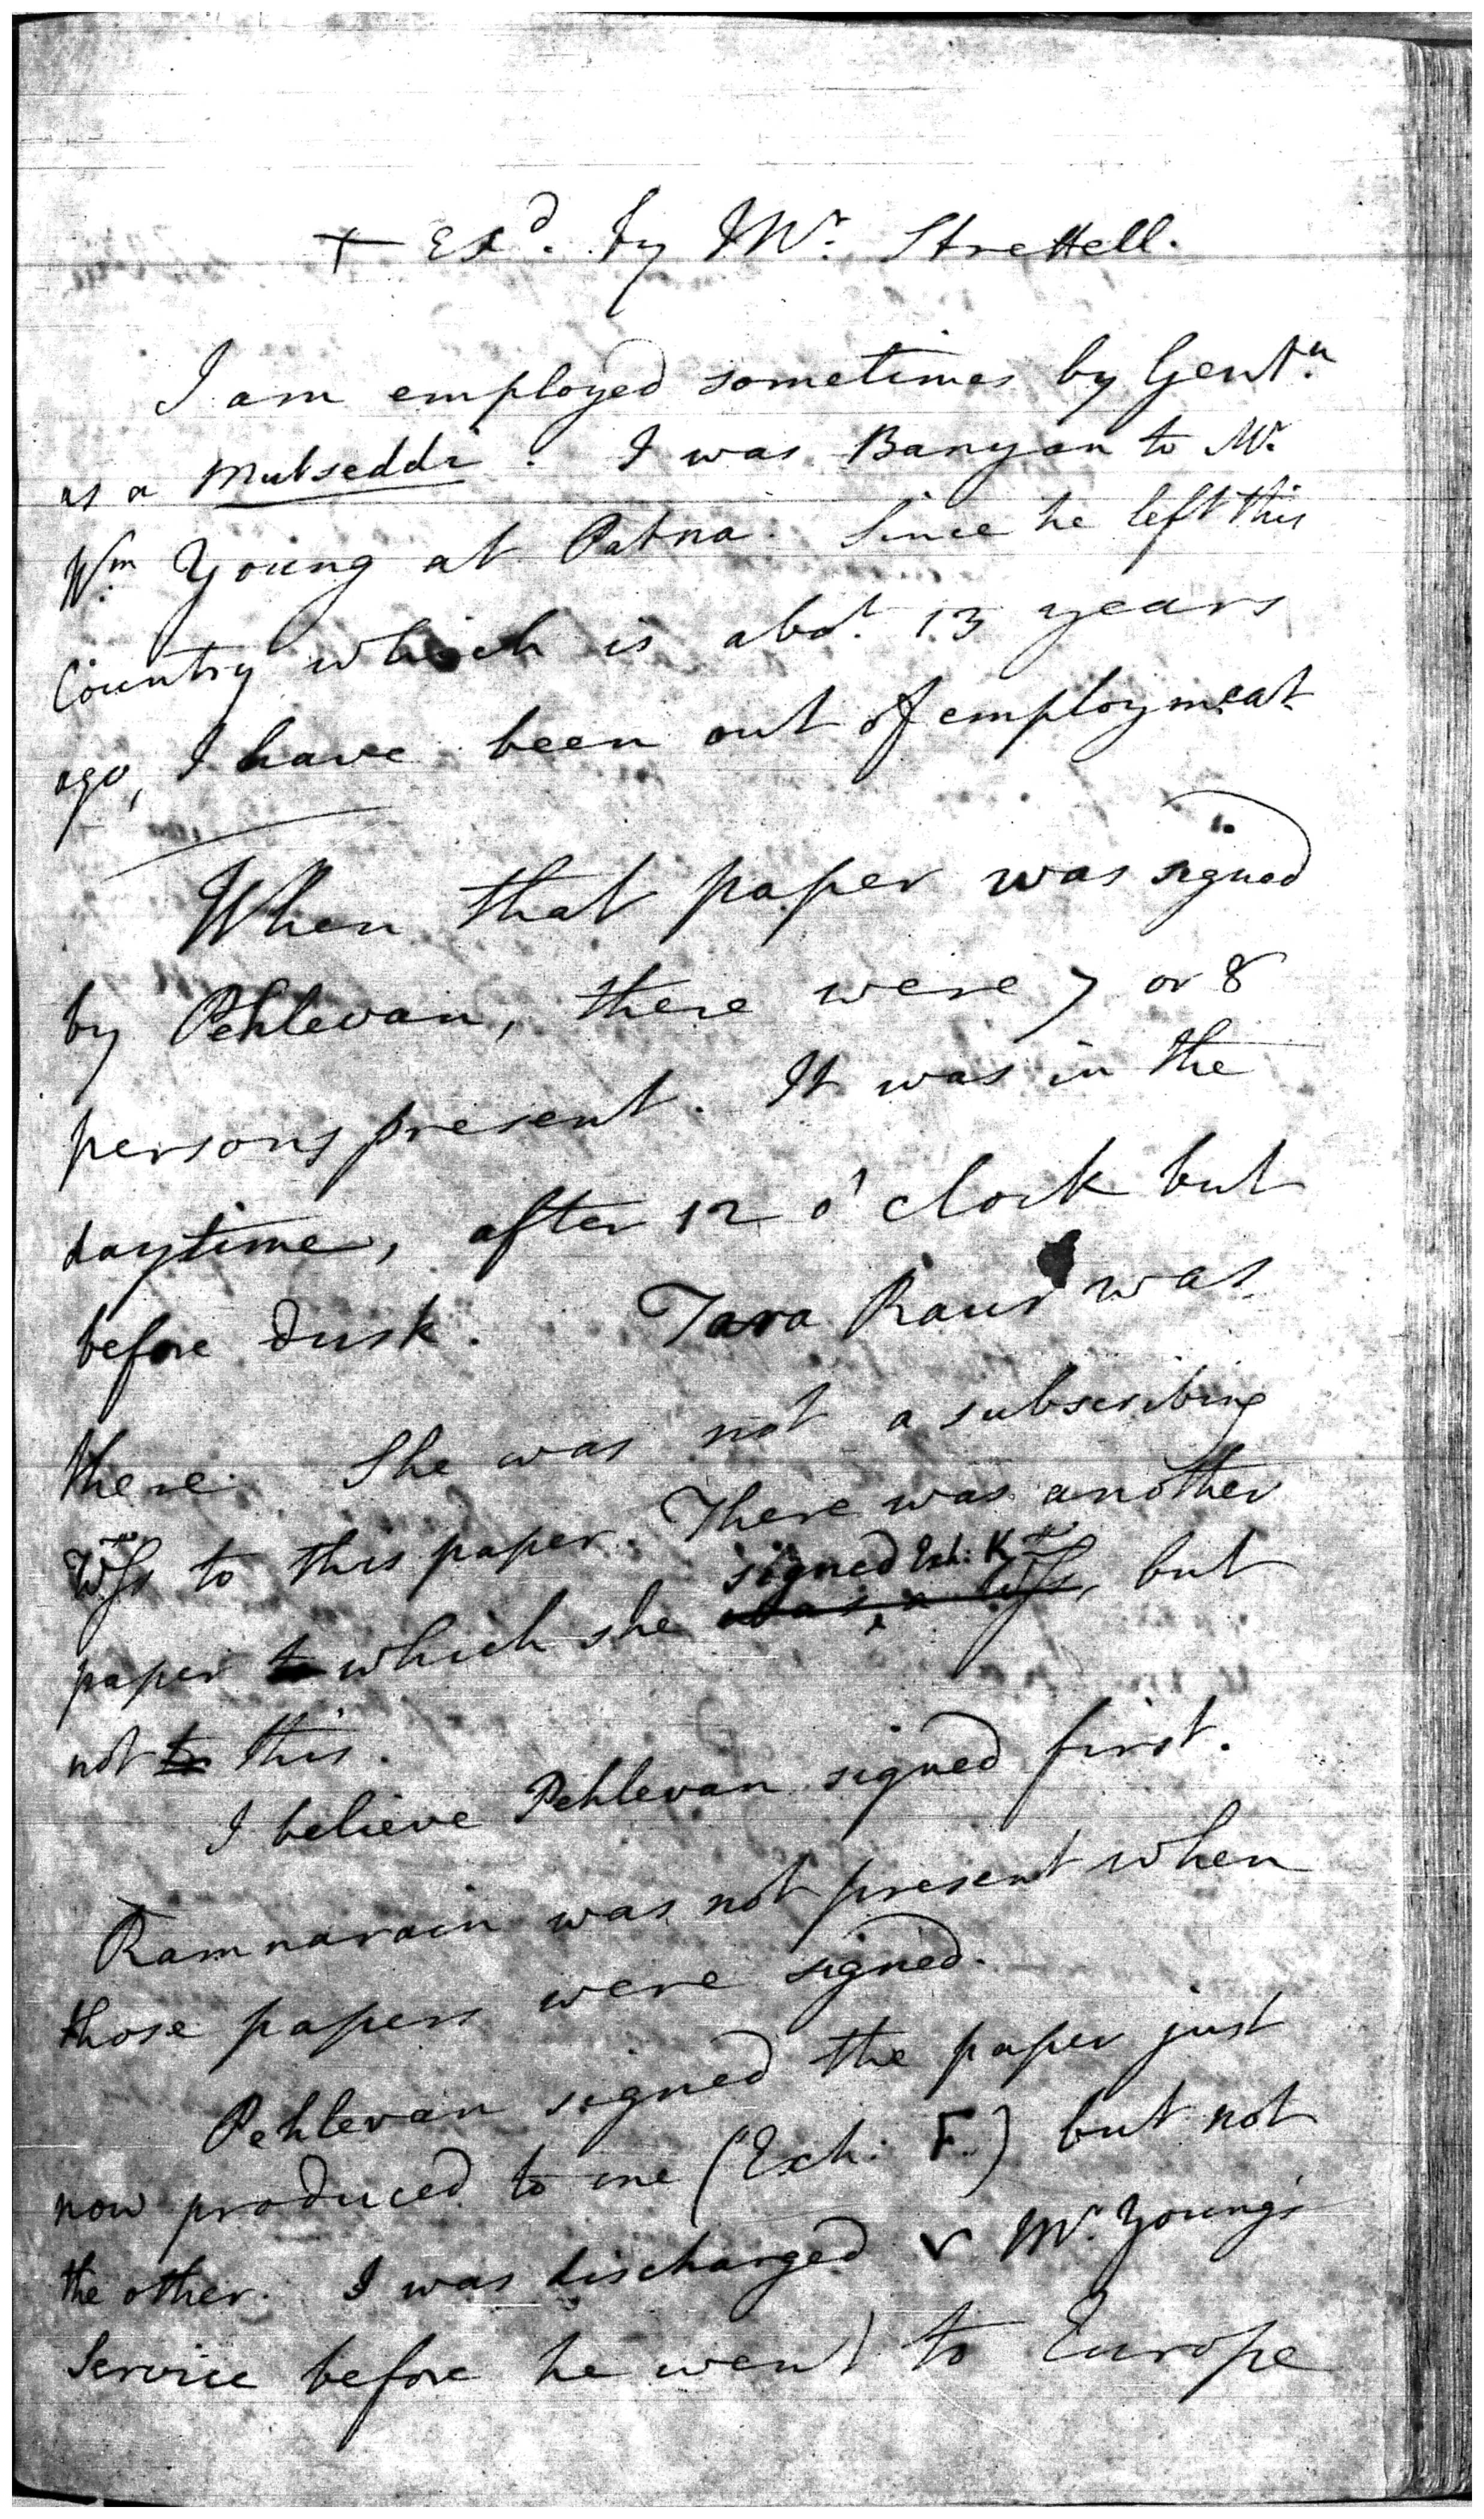 + Exd. by Mr. Strettell.
I am employed sometimes by Gentn.
as a Mutseddi. I was Banyan to Mr.
Wm. Young at Patna. Since he left this
Country which is abot. 13 years
ago, I have been out of employment.
When that paper was signed
by Pehlevan, there were 7 or 8
persons present. It was in the
daytime, after 12 o'clock but
before dusk. Tara Raur was
there. She was not a subscribing
Wss to this paper. There was another
signed Exh: K
paper to which she was a Wss, but
not to this.
I believe Pehlevan signed first.
Ramnarain was not present when
those papers were signed.
Pehlevan signed the paper just
now produced to me (Exh: F.) but not
the other. I was discharged Mr. Young's
Service before he went to Europe